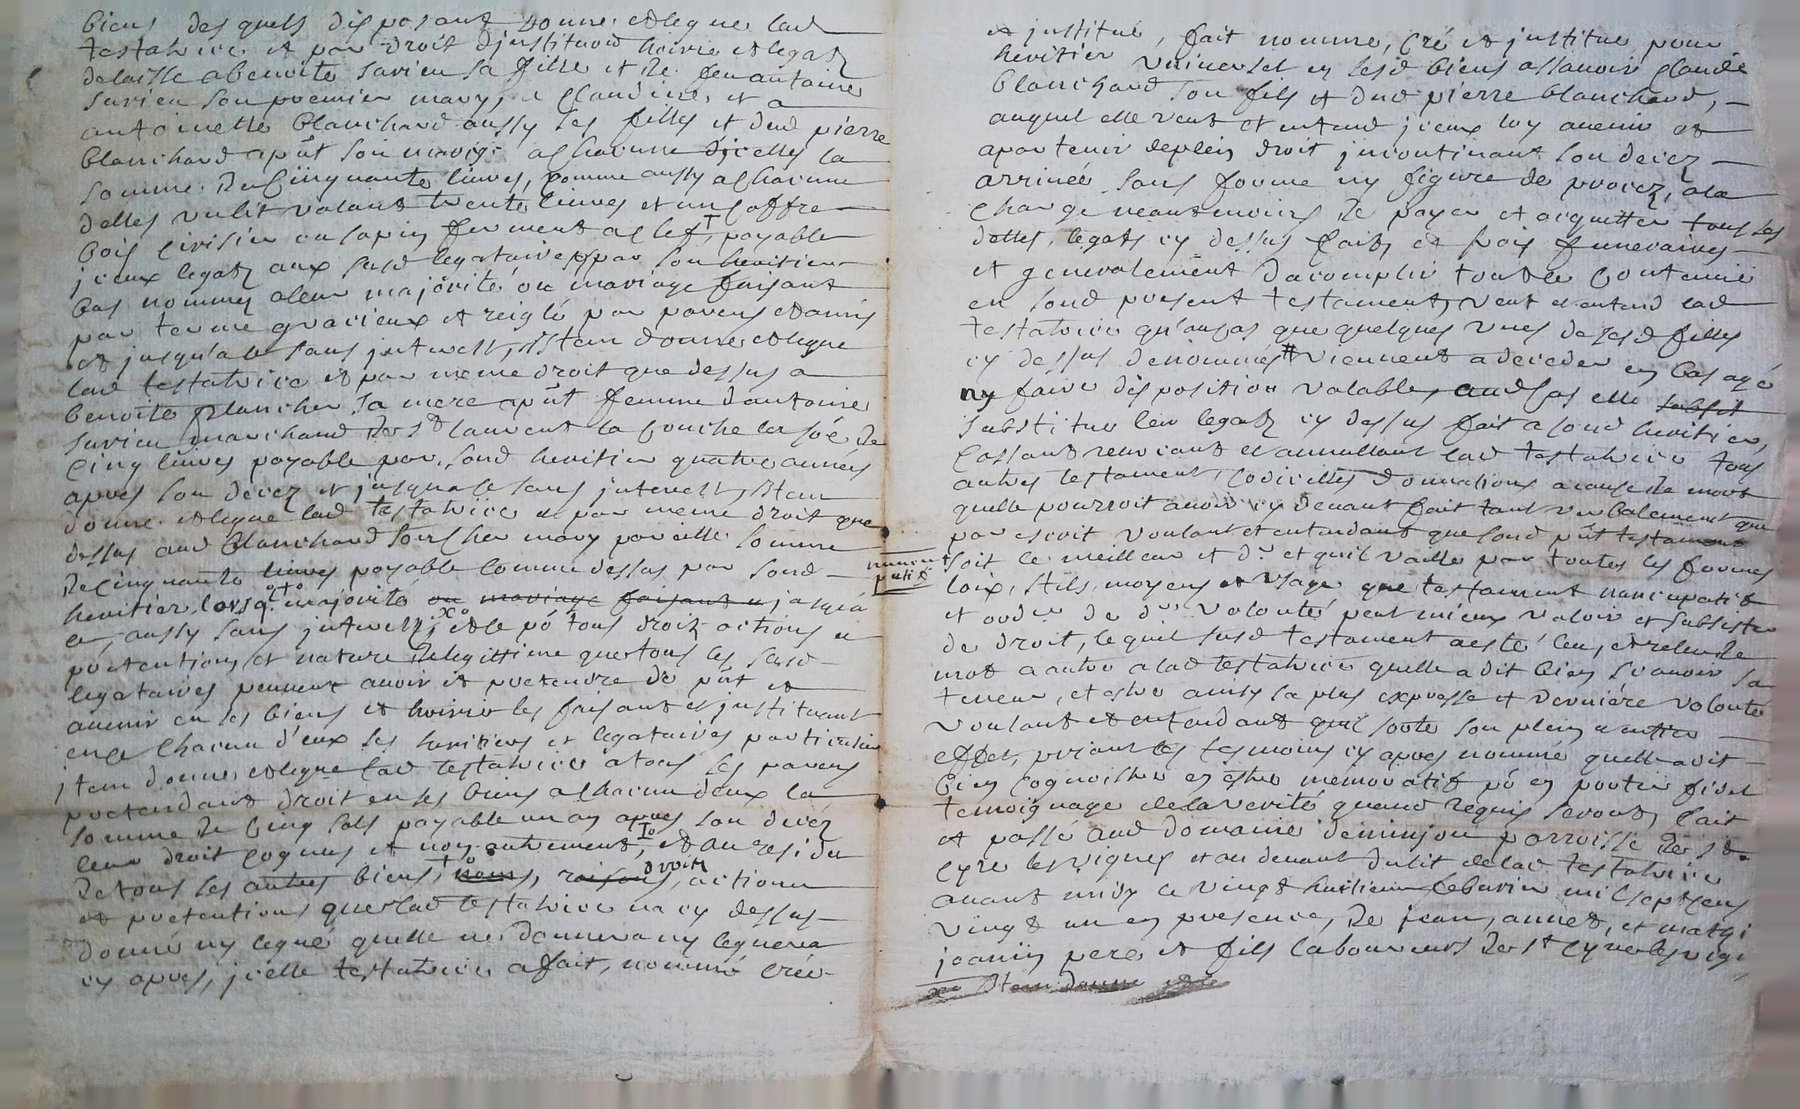 biens des quels disposant donne et legue lad
testatrice et par droit d'justitution hoirie et legatz
delaisse a benoite Savieu sa fille et de feu antoine
Savieu son premier mary, a claudine, et a
antoinette blanchard aussy ses filles et dud pierre
blanchard a chacune dicelles la
somme de cinquante livres, comme aussy a chacune
delles un lit valant trente livres et un coffre
bois ou sapin ferment a clef, payable
jceux legatz aux susd legataires par son heritier
bas nommez a leur majorité ou mariage faisant
par terme gracieux et reiglé par parens et amis
et jusqu'a ce sans jnterest, Item donne et legue
lad testatrice et par meme droit que dessus a
benoite plancher sa mere pñt femme d'antoine
Savieu marchand de St laurent la conche de
cinq livres payable par sond heritier quatre années
apres son decez et jusqua ce sans jnterest, Item
donne et legue lad testatrice et par meme droit que
dessus aud blanchard son cher mary pareille somme
de cinquante livres payable comme dessus par sond
heritier, majorité ou mariage faisant jusqu'a
ce aussy sans jnterest, et ce põ tous droitz actions et
pretentions et nature de legittime que tous les susd
legataires peuvent avoir et pretendre de pñt et
avenir en ses biens et hoirie les faisant et justituant
en ce chacun d'eux ses heritiers et legataires particuliers
jtem donne et legue lad testatrice a tous les parens
pretendant droit en ses biens a chacun deux la
somme de cinq sols payable un an apres son decez
leur droit cognus et non autrement, et au residu
de tous ses autres biens, noms, raisons, droitz actions
et pretentions que lad testatrice na cy dessus
donné ny legué quelle ne donnera ny leguera
cy apres, jcelle testatrice a fait, nommé créé
et justitué, fait nomme, cré et justitue pour
heritier universel en sesd biens assavoir claude
blanchard son fils et dud pierre blanchard,
auquel elle veut et entend jceux luy avenir et
apartenir de plein droit jncontinant son decez
arrivée sans forme ny figure de procez, a la
charge neantmoins de payer et acquitter tous ses
dettes, legatz cy dessus faitz et frais funeraires
et generalement dacomplir tout le contenu
en sond present testament, veut et entend lad
testatrice qu'au cas que quelques unes de sesd filles
cy dessus denommées # viennent a deceder en bas agé
ny faire disposition valable, aud cas elle
substitue leur legatz cy dessus fait a sond heritier,
cassant revocant et annullant lad testatrice tous
autres testament, codicilles donnations a cause de mort
quelle pourroit avoir cy devant fait tant verbalement que
par escrit voulant et entendant que sond pñt testament
nuncupatif
soit le meilleur et dr et quil vaille par toutes les formes
loix, stils, moyens et usage que testament nuncupatif
et ordre de dre volonté peut mieux valoir et subsister
de droit, lequel susd testament a esté leu, et releu de
mot a autre a lad testatrice quelle a dit bien scavoir sa
teneur, et estre ainsy sa plus expresse et derniere volonté
voulant et entendant quil sorte son plein et entier
effet, priant les tesmoins cy apres nommé quelle a dit
bien cognoistre en estre memoratif põ en porter fidel
temoignage de la verité quand requis seront, fait
et passé aud domaine deminjou parroisse de St
Cyre les vignes et au devant du lit de lad testatrice
avant midy ce vingt huitieme febvrier mil sept cens
vingt un en presence, de jean, annet, et mathi
jeanin pere et fils laboureurs de St Cyre les vign
xo Item donne